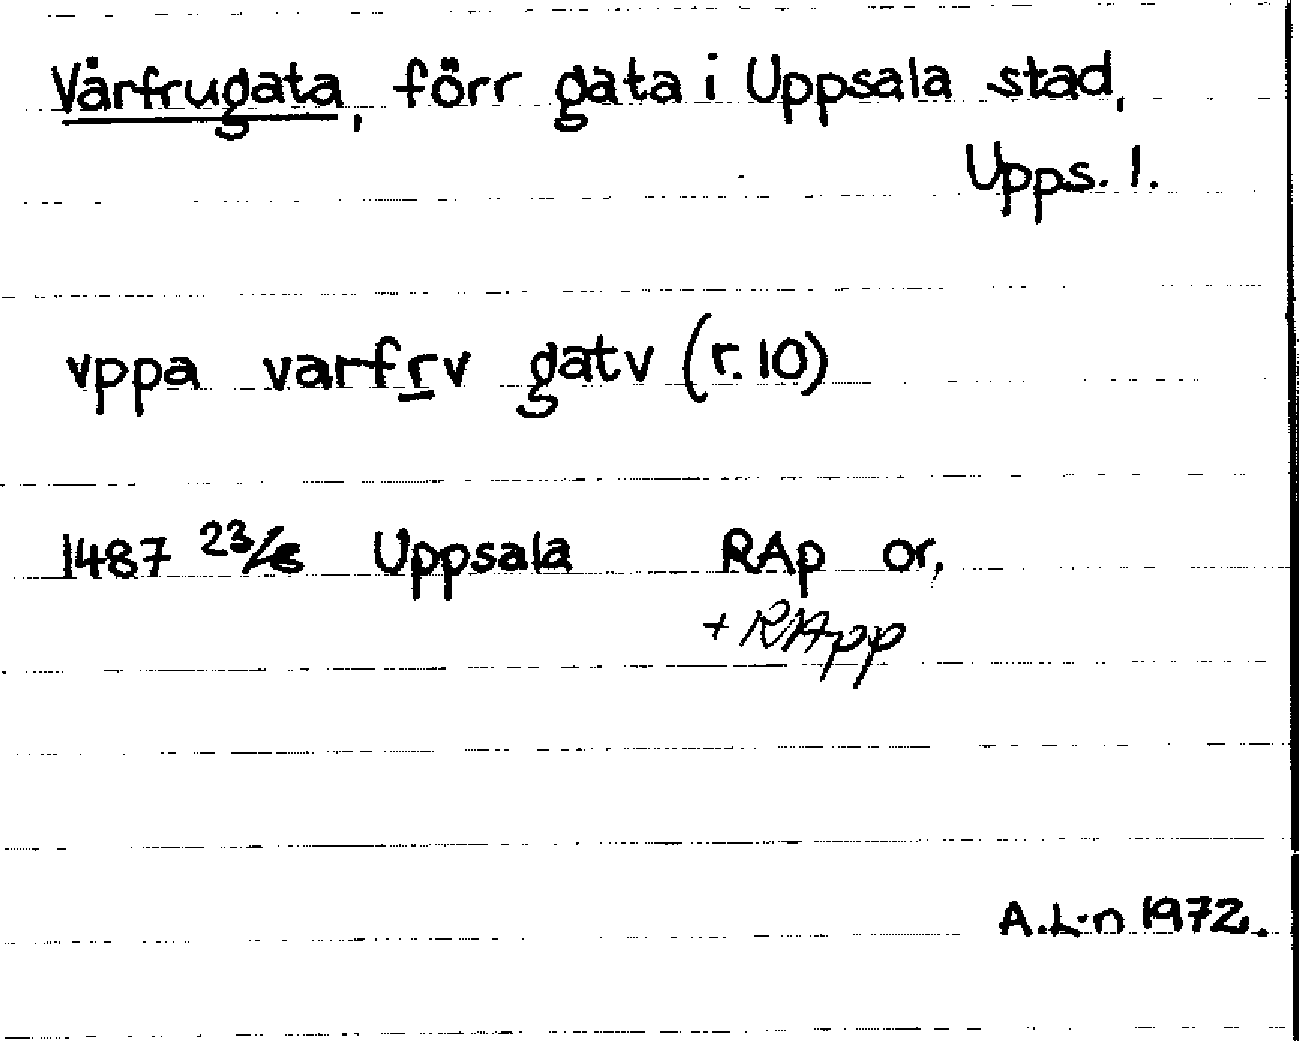 Vårfrugata, förr gata i Uppsala stad,
Upps. l.
vppa varfrv gatv (r. 10)
1487 23/8 Uppsala RAp or,
+ RApp
A.L-n 1972.